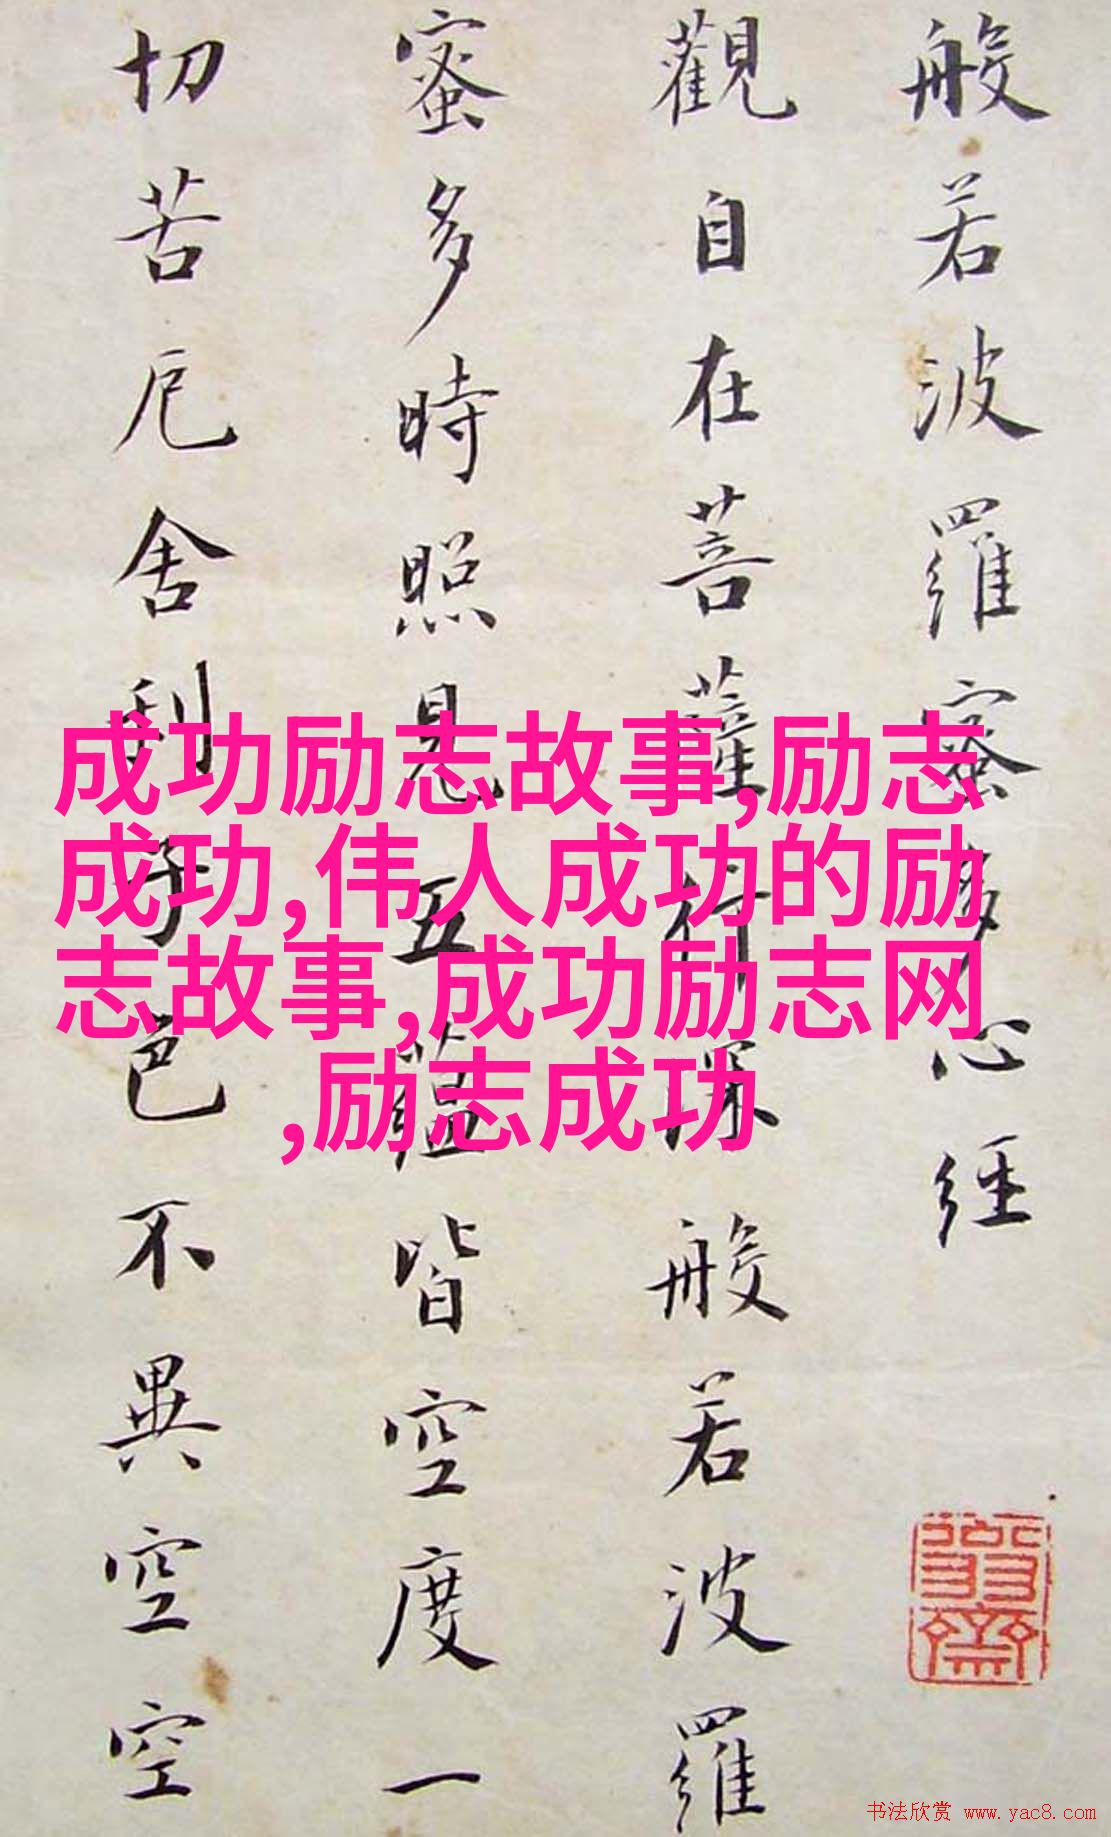 般若波羅蜜多心經
觀自在菩薩行深般若波羅
蜜多時照見五蘊皆空度一
切苦厄舍利子色不異空空
成功励志故事,励志
成功,伟人成功的励
志故事,成功励志网
,励志成功
书法欣赏 www.yac8.com